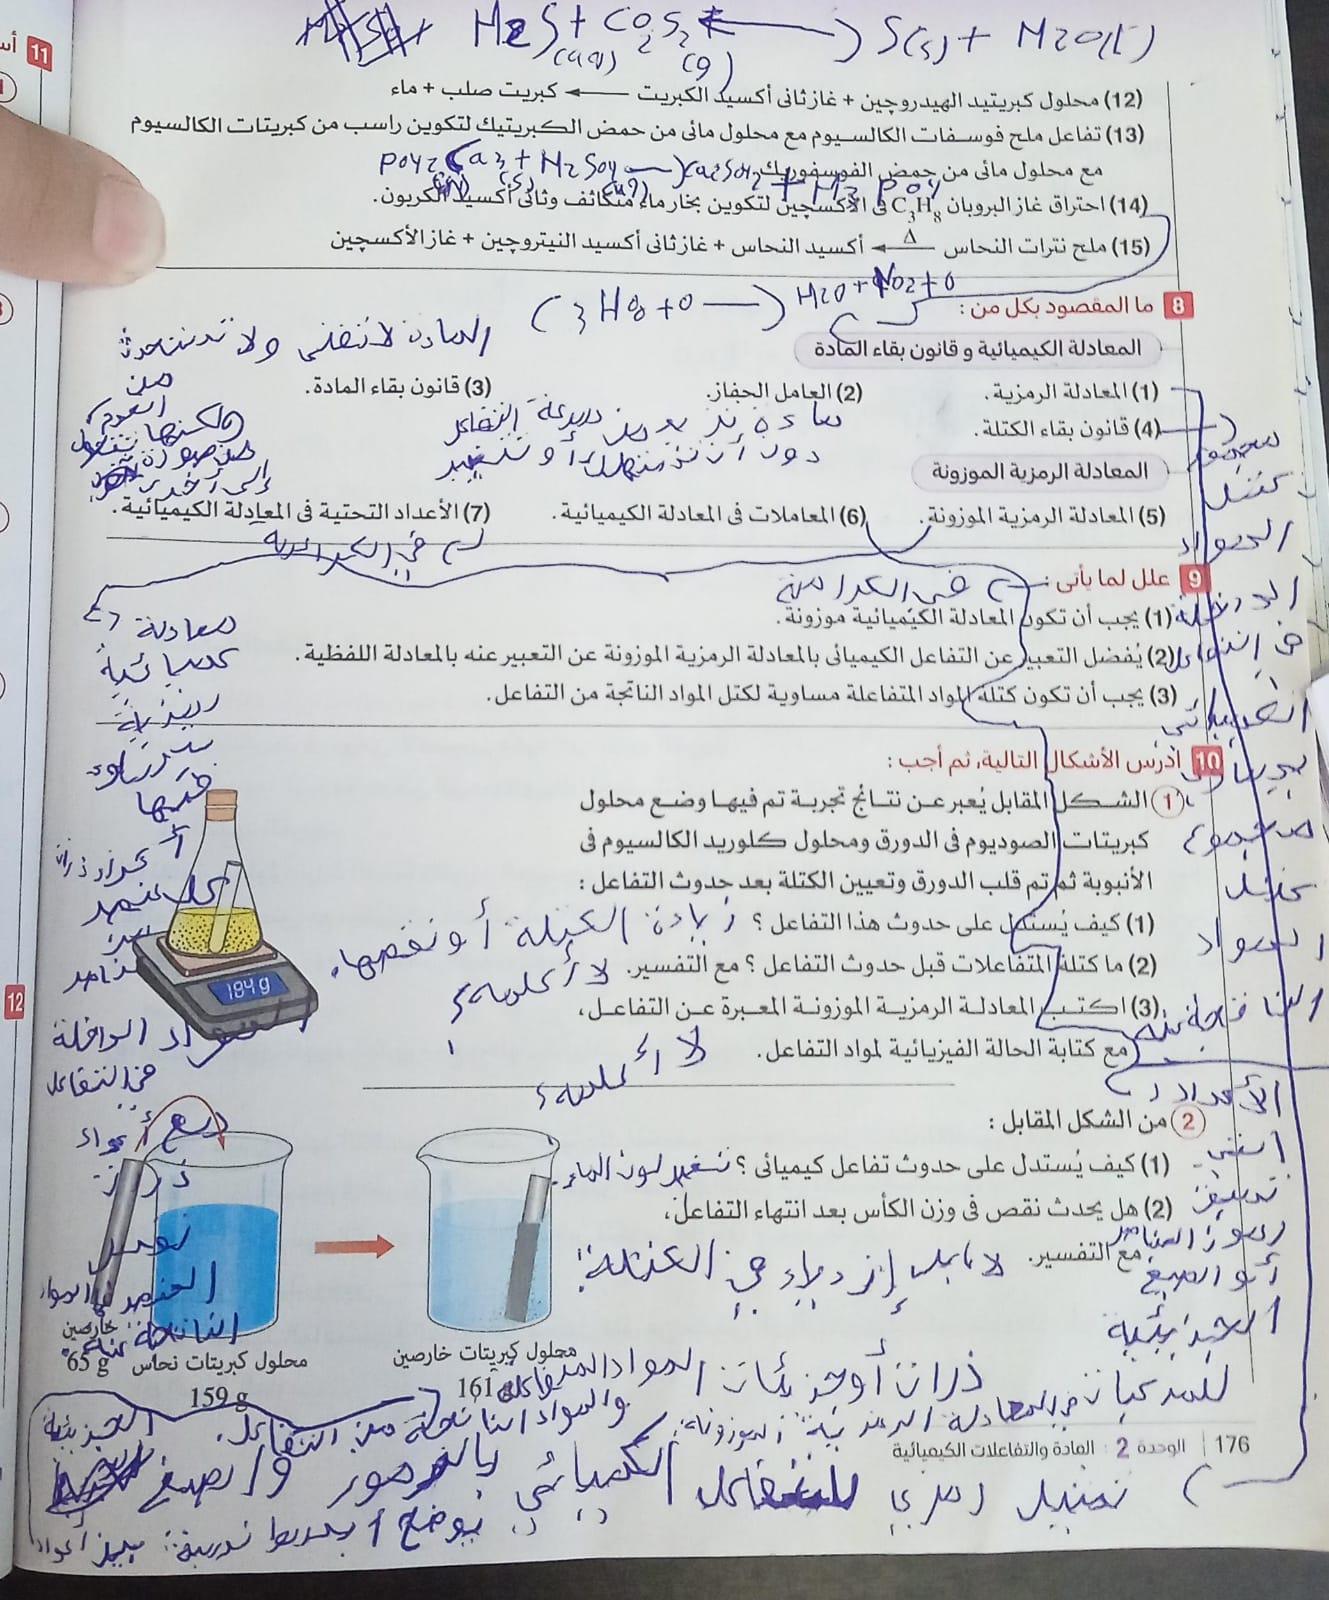 H2S + CO2S2 ⟷ S(s) + H2O(l)
(aq) (g)
(12) محلول كبريتيد الهيدروچين + غاز ثانى أكسيد الكبريت ⟵ كبريت صلب + ماء
(13) تفاعل ملح فوسفات الكالسيوم مع محلول مائى من حمض الكبريتيك لتكوين راسب من كبريتات الكالسيوم
مع محلول مائى من حمض الفوسفوريك.
(14) احتراق غاز البروبان C3H8 فى الأكسچين لتكوين بخار ماء متكاثف وثانى أكسيد الكربون.
(15) ملح نترات النحاس ⟵Δ أكسيد النحاس + غاز ثانى أكسيد النيتروچين + غاز الأكسچين
H2O + NO2 + O
8 ما المقصود بكل من :
المادة لا تفنى ولا تستحدث
من
العدم
ولكنها تتحول
من صورة
إلى أخرى
المعادلة الكيميائية و قانون بقاء المادة
(1) المعادلة الرمزية.
(2) العامل الحفاز.
(3) قانون بقاء المادة.
مادة تزيد من سرعة التفاعل
دون أن تستهلك أو تتغير
(4) قانون بقاء الكتلة.
المعادلة الرمزية الموزونة
(5) المعادلة الرمزية الموزونة.
(6) المعاملات فى المعادلة الكيميائية.
(7) الأعداد التحتية فى المعادلة الكيميائية.
في الكراسة
9 علل لما يأتى :
في الكراسة
(1) يجب أن تكون المعادلة الكيميائية موزونة.
(2) يُفضل التعبير عن التفاعل الكيميائى بالمعادلة الرمزية الموزونة عن التعبير عنه بالمعادلة اللفظية.
(3) يجب أن تكون كتلة المواد المتفاعلة مساوية لكتل المواد الناتجة من التفاعل.
مجموع
كتل
المواد
الداخلة
في التفاعل
الكيميائي
يساوي
مجموع
كتل
المواد
الناتجة منه
معادلة
كيميائية
رمزية
يتساوى
فيها
أعداد ذرات
كل عنصر
المواد الداخلة
في التفاعل
مع أعداد
ذرات
نفس
العنصر في المواد
الناتجة منه
10 ادرس الأشكال التالية، ثم أجب :
1 الشكل المقابل يُعبر عن نتائج تجربة تم فيها وضع محلول
كبريتات الصوديوم فى الدورق ومحلول كلوريد الكالسيوم فى
الأنبوبة ثم تم قلب الدورق وتعيين الكتلة بعد حدوث التفاعل :
(1) كيف يُستدل على حدوث هذا التفاعل ؟ زيادة الكتلة أو نقصها.
(2) ما كتلة المتفاعلات قبل حدوث التفاعل ؟ مع التفسير. لا أعلمه؟
(3) اكتب المعادلة الرمزية الموزونة المعبرة عن التفاعل،
مع كتابة الحالة الفيزيائية لمواد التفاعل. لا أعلمه؟
184 g
2 من الشكل المقابل :
(1) كيف يُستدل على حدوث تفاعل كيميائى ؟ تتغير لون الماء.
(2) هل يحدث نقص فى وزن الكأس بعد انتهاء التفاعل،
مع التفسير. لا بل إزدياد في الكتلة
الأعداد
التي
تسبق
رموز العناصر
أو الصيغ
الجزيئية
خارصين
65 g
محلول كبريتات نحاس
159 g
محلول كبريتات خارصين
161 g
للمركبات في المعادلة الرمزية الموزونة
ذرات أو جزيئات المواد المتفاعلة
والمواد الناتجة من التفاعل.
176 الوحدة 2 : المادة والتفاعلات الكيميائية
تمثيل رمزي للتفاعل الكيميائي بالرموز والصيغ
الجزيئية
11
12